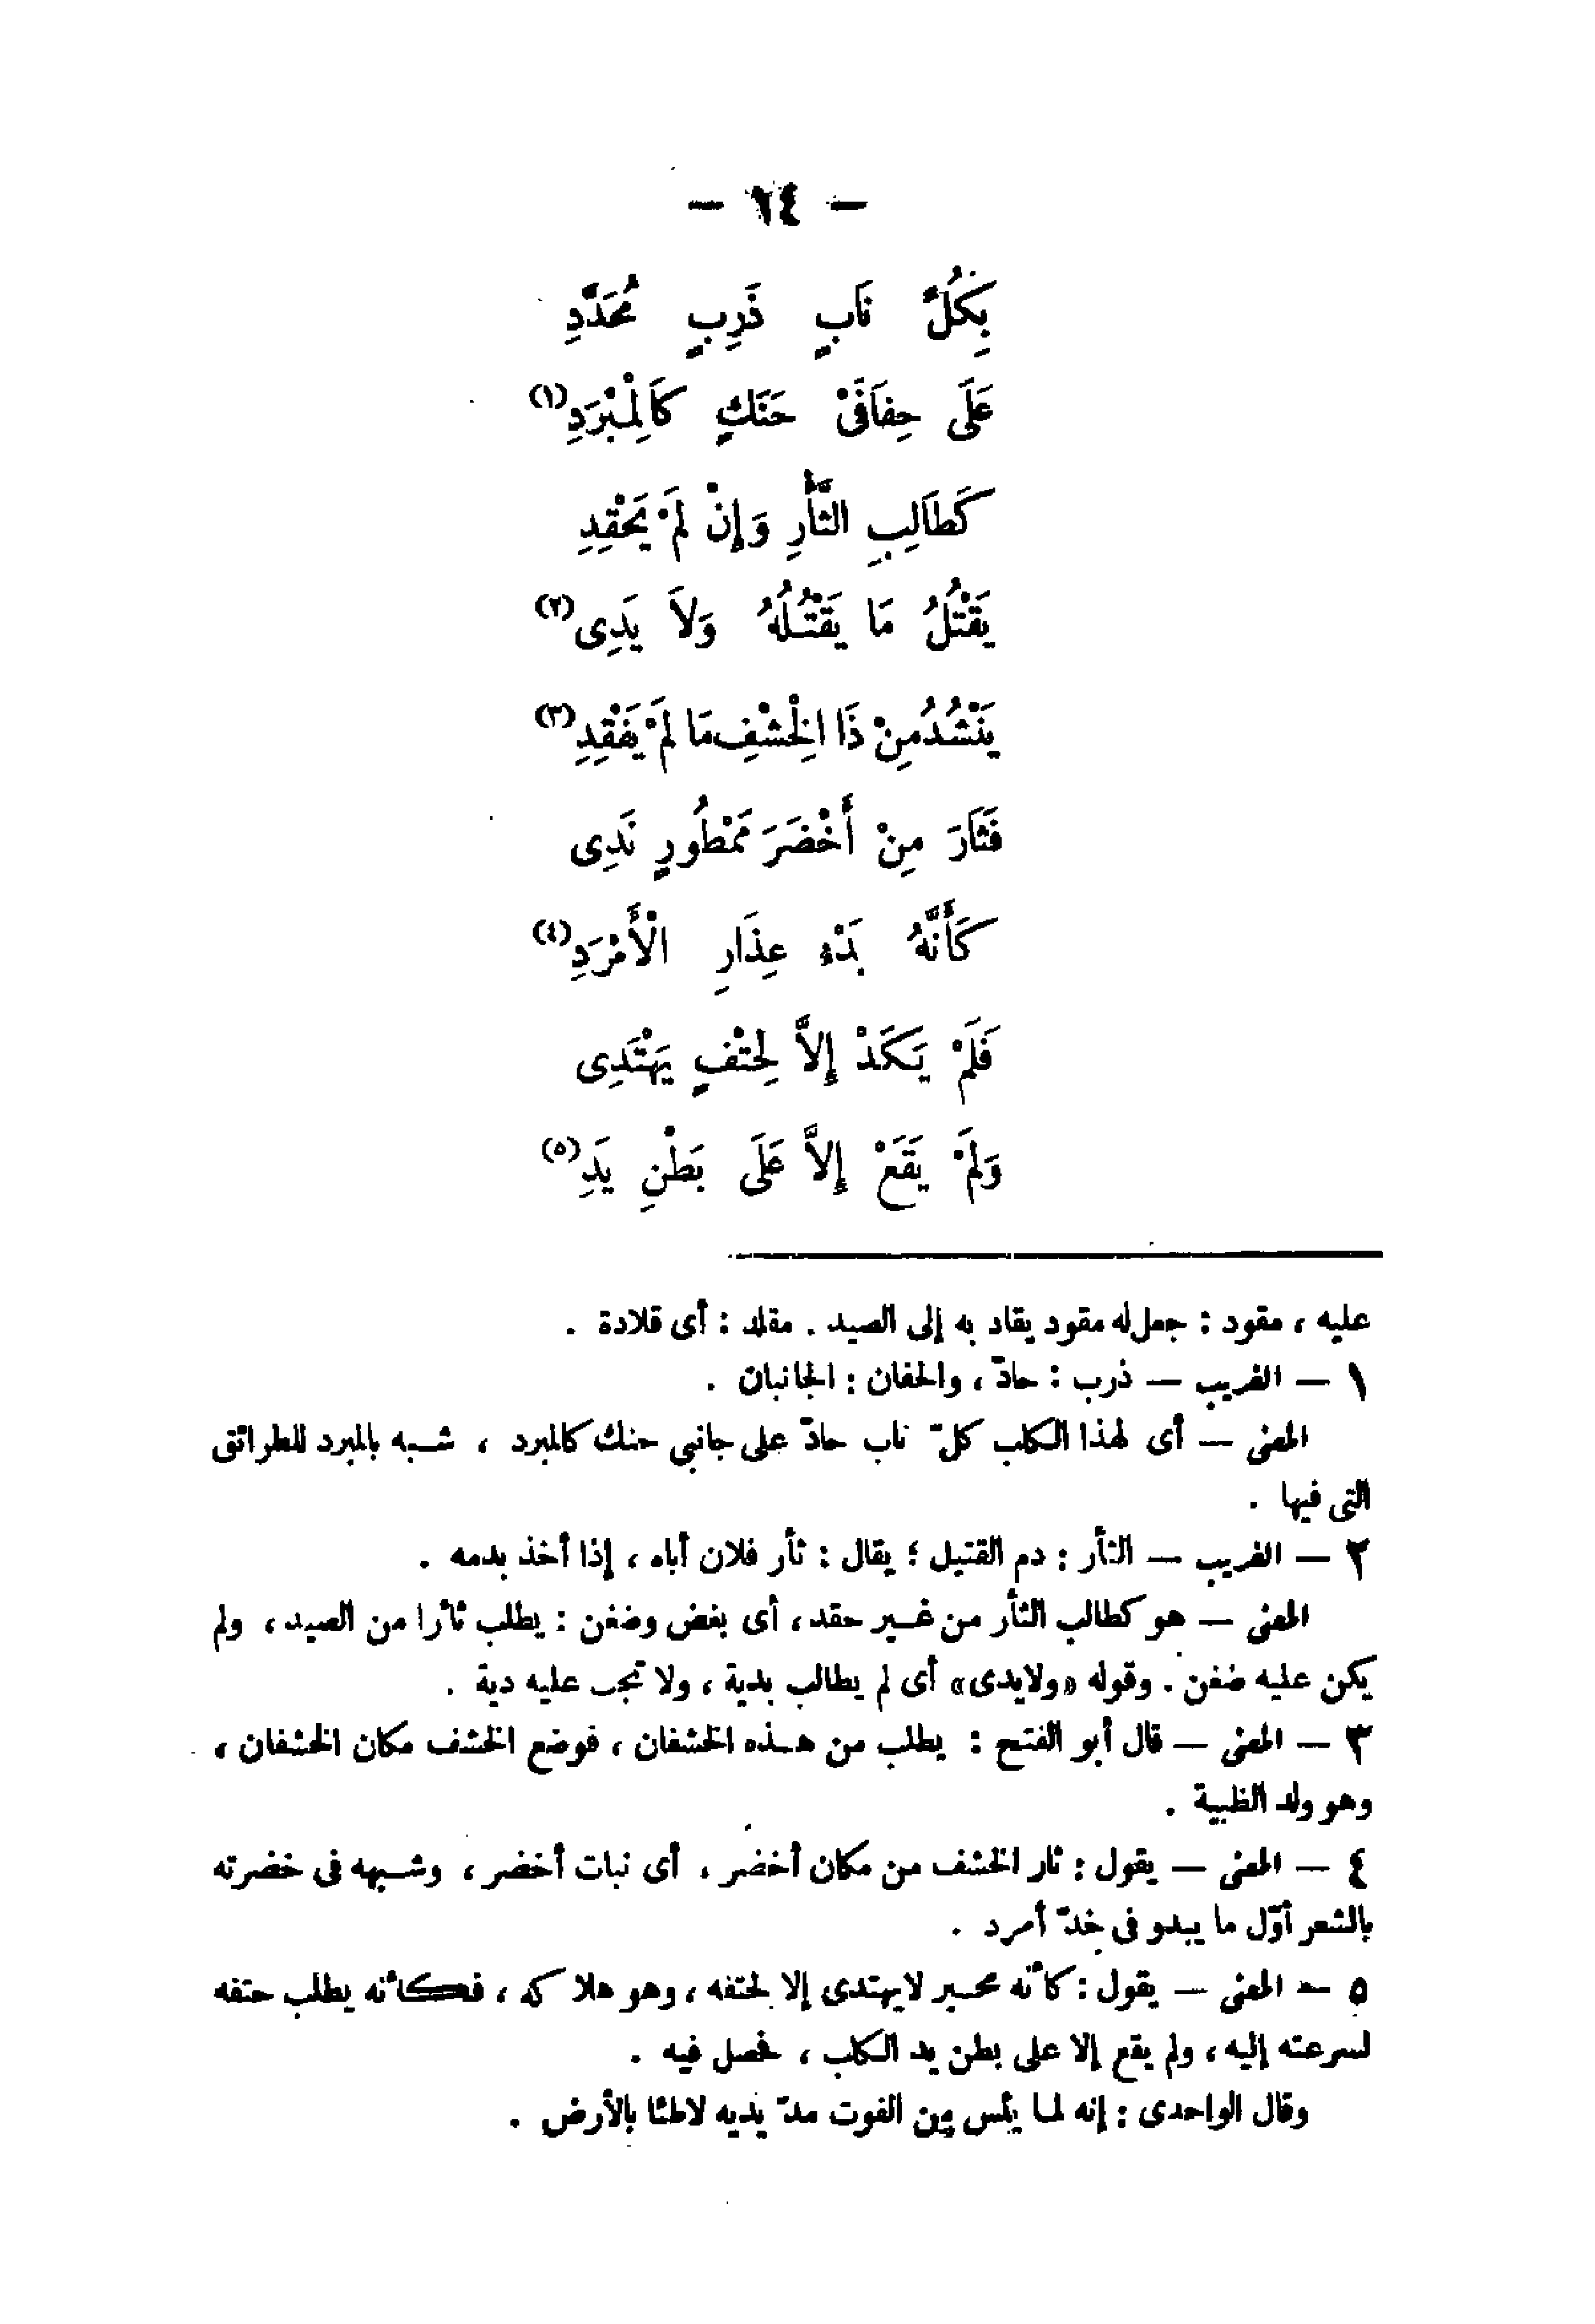 — ١٤ —
بِكُلِّ نَابٍ ذَرِبٍ مُحَدَّدِ
عَلَى حِفَافَىْ حَنَكٍ كَالْمِبْرَدِ (١)
كَطَالِبِ الثَّأْرِ وَإِنْ لَمْ يَحْقِدِ
يَقْتُلُ مَا يَقْتُلُهُ وَلاَ يَدِى (٢)
يَنْشُدُ مِنْ ذَا الْخِشْفِ مَا لَمْ يَفْقِدِ (٣)
فَثَارَ مِنْ أَخْضَرَ مَمْطُورٍ نَدِى
كَأَنَّهُ بَدْءُ عِذَارِ الْأَمْرَدِ (٤)
فَلَمْ يَكَدْ إِلاَّ لِحَتْفٍ يَهْتَدِى
وَلَمْ يَقَعْ إِلاَّ عَلَى بَطْنِ يَدِ (٥)
عليه ، مقود : جعل له مقود يقاد به إلى الصيد . مقلد : أى قلادة .
١ — الغريب — ذرب : حادّ ، والحفان : الجانبان .
المعنى — أى لهذا الكلب كلّ ناب حادّ على جانبى حنك كالمبرد ، شبه بالمبرد للطرائق
التى فيها .
٢ — الغريب — الثأر : دم القتيل ؛ يقال : ثأر فلان أباه ، إذا أخذ بدمه .
المعنى — هو كطالب الثأر من غير حقد ، أى بغض وضغن : يطلب ثأرا من الصيد ، ولم
يكن عليه ضغن . وقوله «ولايدى» أى لم يطالب بدية ، ولا تجب عليه دية .
٣ — المعنى — قال أبو الفتح : يطلب من هذه الخشفان ، فوضع الخشف مكان الخشفان ،
وهو ولد الظبية .
٤ — المعنى — يقول : ثار الخشف من مكان أخضر ، أى نبات أخضر ، وشبهه فى خضرته
بالشعر أوّل ما يبدو فى خدّ أمرد .
٥ — المعنى — يقول : كأنه محير لايهتدى إلا لحتفه ، وهو هلاكه ، فكأنه يطلب حتفه
لسرعته إليه ، ولم يقع إلا على بطن يد الكلب ، فحصل فيه .
وقال الواحدى : إنه لما يئس من الفوت مدّ يديه لاطئا بالأرض .